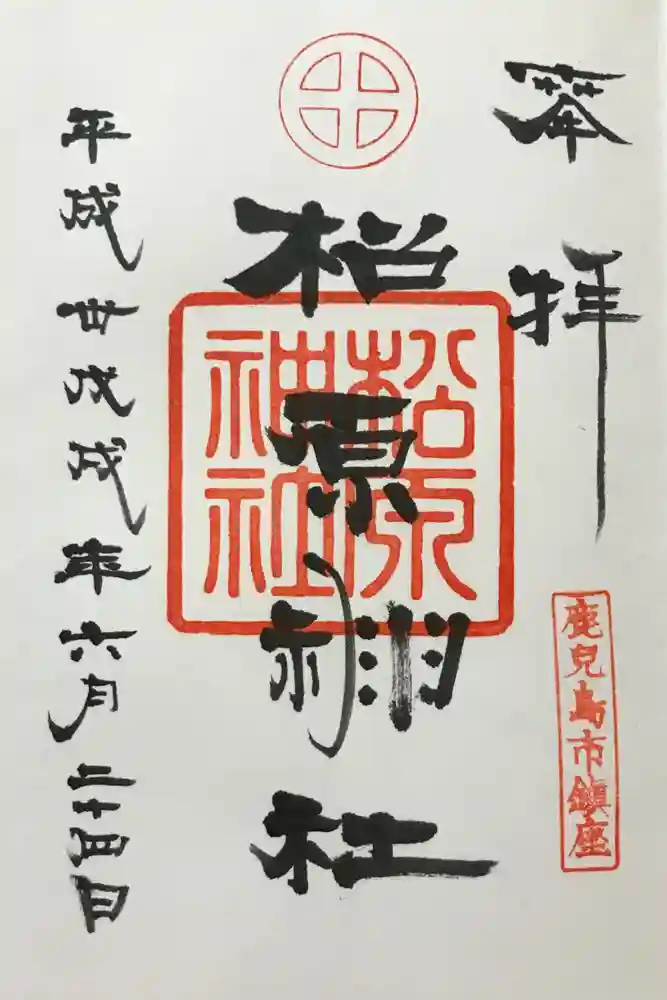 奉拝
鹿兒島市鎮座
松原神社
松原
神社
平成卅戊戌年六月二十四日